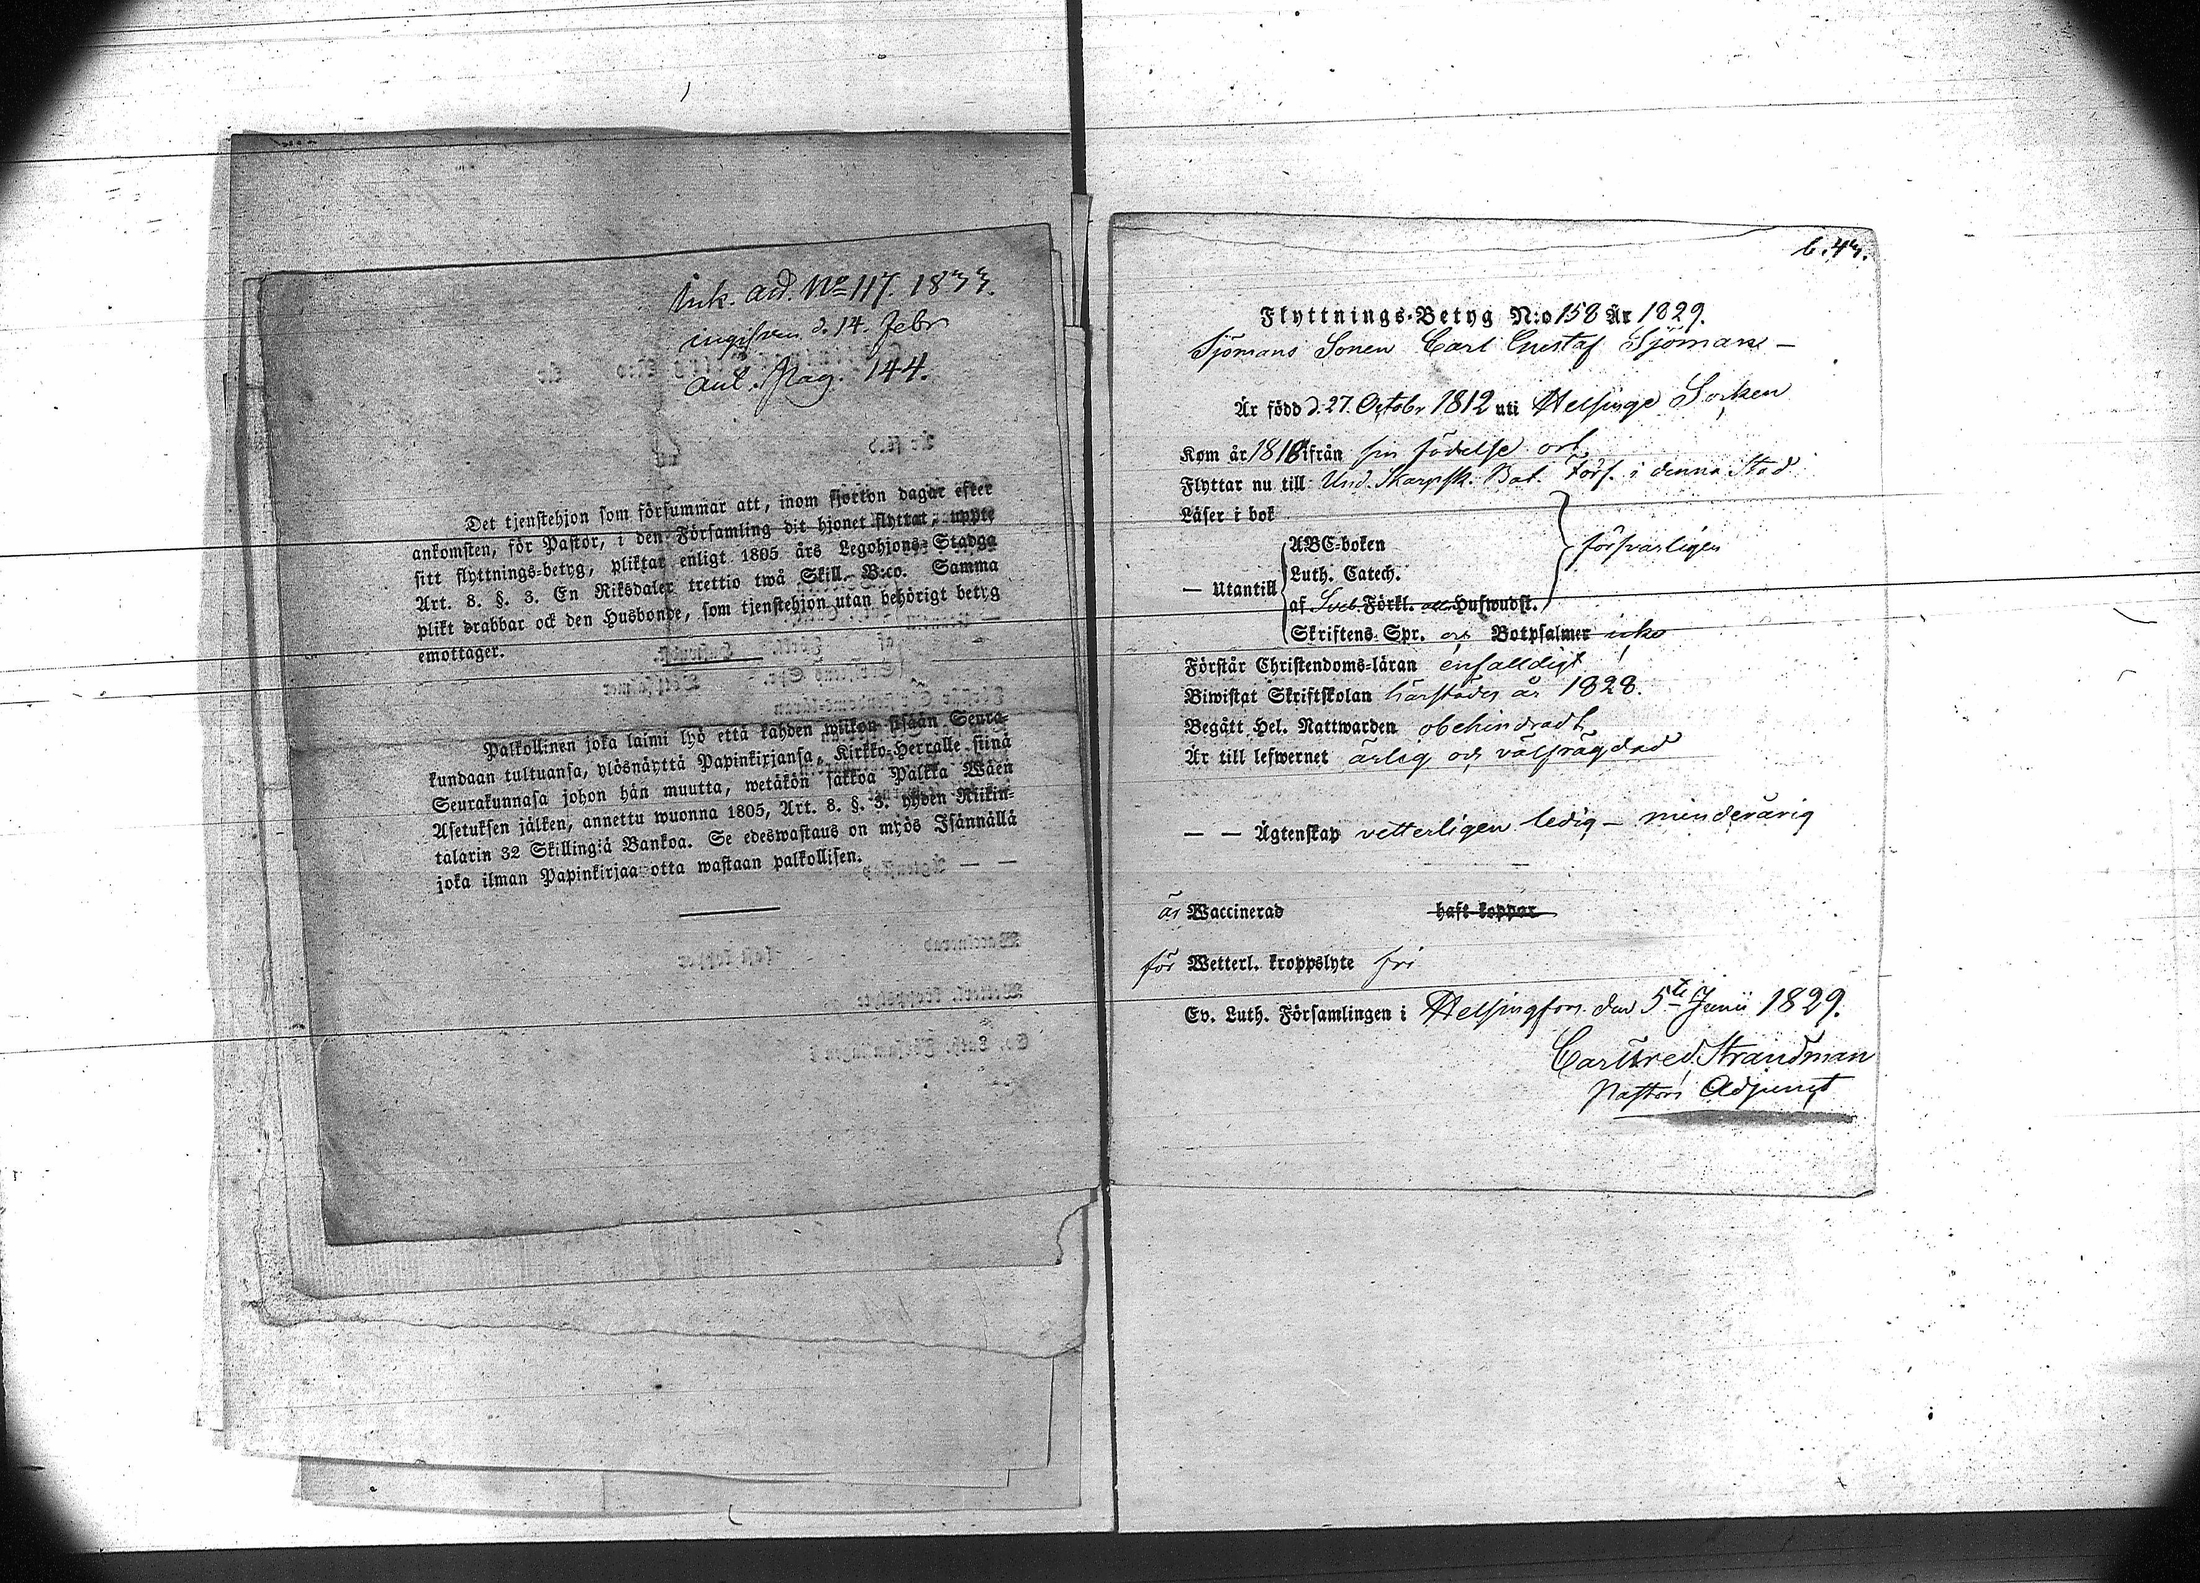 Ink. ad. No 117. 1833.
ingifven d. 14. Febr
anl. Pag. 144.
Det tjenstehjon som försummar att, inom fjorton dagar efter
ankomsten, för Pastor, i den Församling dit hjonet flyttat, uppte
sitt flyttnings-betyg, pliktar enligt 1805 års Legohjons-Stadga
Art. 8. §. 3. En Riksdaler trettio twå Skill. B:co. Samma
plikt drabbar ock den Husbonde, som tjenstehjon utan behörigt betyg
emottager.
Palkollinen joka laimi lyö että kahden wiikon sisään Seura-
kundaan tultuansa, ylösnäyttä Papinkirjansa, Kirkko-Herralle siinä
Seurakunnasa johon hän muutta, wetäkön sakkoa Palkka Wäen
Asetuksen jälken, annettu wuonna 1805, Art. 8. §. 3. yhden Riikin-
talarin 32 Skillingiä Bankoa. Se edeswastaus on myös Isännällä
joka ilman Papinkirjaa otta wastaan palkollisen.
b. 43.
Flyttnings-Betyg N:o 158 År 1829.
Sjömans Sonen Carl Gustaf Sjöman —
Är född d. 27. Octobr 1812 uti Helsinge Socken
Kom år 1818 ifrån sin födelse ort
Flyttar nu till Und. Skarpsk. Bat. Förs. i denna Stad
Läser i bok
ABC-boken försvarligen
Luth. Catech.
— Utantill
af Sveb. Förkl. och Husswudst.
Skriftens Spr. och Botpsalmer icke
Förstår Christendoms-läran enfalldigt
Biwistat Skriftskolan härstädes år 1828.
Begått Hel. Nattwarden obehindradt
Är till lefwernet ärlig och välfrägdad
— — Ägtenskap vetterligen ledig — minderårig
är Waccinerad haft koppor
för Wetterl. kroppslyte fri
Ev. Luth. Församlingen i Helsingfors den 5te Junii 1829.
Carl Fred. Strandman
Pastors Adjunct